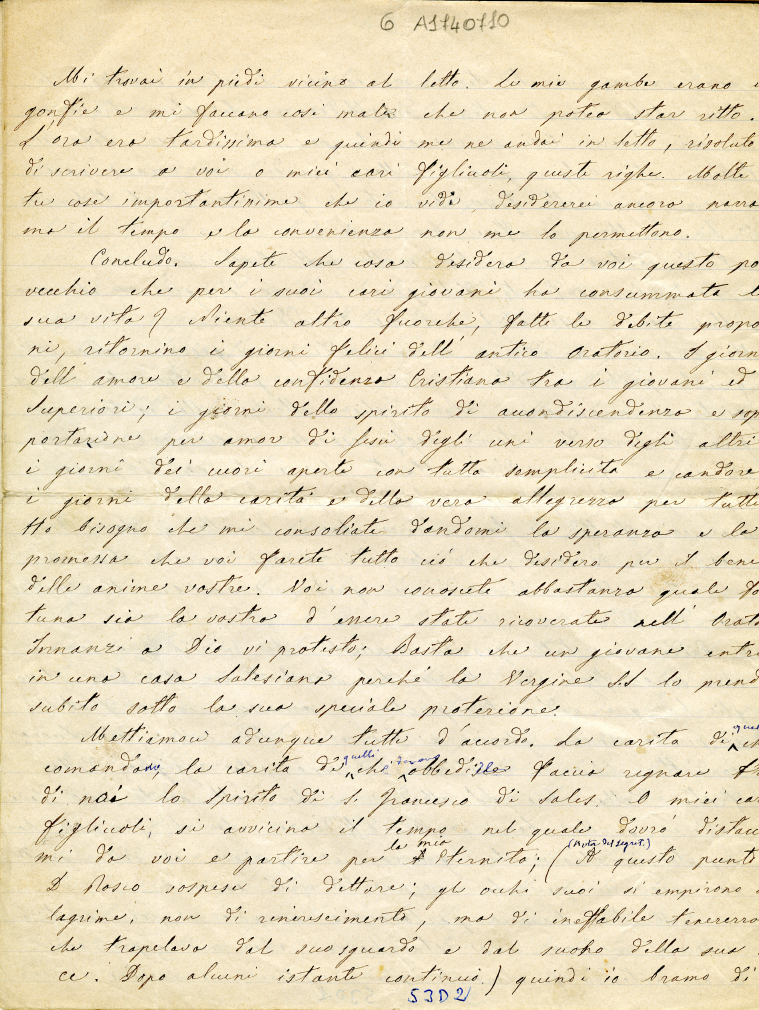 6 A1740710
Mi trovai in piedi vicino al letto. Le mie gambe erano
gonfie e mi faceano così male che non potea star ritto.
L'ora era tardissima e quindi me ne andai in letto, risoluto
di scrivere a voi o miei cari figliuoli, queste righe. Molte
te cose importantissime che io vidi, desidererei ancora narra
ma il tempo e la convenienza non me lo permettono.
Concludo. Sapete che cosa desidera da voi questo po
vecchio che per i suoi cari giovani ha consummata
sua vita? Niente altro fuorché, fatte le debite propo
ni, ritornino i giorni felici dell'antico Oratorio. I giorn
dell'amore e della confidenza Cristiana tra i giovani ed
Superiori; i giorni dello spirito di accondiscendenza e sop
portazione per amor di Gesù degli uni verso degli altri
i giorni dei cuori aperti con tutta semplicità e candore
i giorni della carità e della vera allegrezza per tutti
Ho bisogno che mi consoliate dandomi la speranza e la
promessa che voi farete tutto ciò che desidero per il bene
delle anime vostre. Voi non conoscete abbastanza quale fo
tuna sia la vostra d'essere stati ricoverati nell'Orat
Innanzi a Dio vi protesto; Basta che un giovane entr
in una casa Salesiana perché la Vergine SS lo prend
subito sotto la sua speciale protezione.
Mettiamoci adunque tutti d'accordo. La carità di que ch
comandano, la carità di quelli che devono obbedire faccia regnare fr
di noi lo spirito di S. Francesco di Sales. O miei ca
figliuoli, si avvicina il tempo nel quale dovrò distac
mi da voi e partire per la mia Eternità; (Nota del Segret.) (A questo punto
D Bosco sospese di dettare; gli occhi suoi si empirono
lagrime, non di rincrescimento, ma di ineffabile tenerezza
che trapelava dal suo sguardo e dal suono della sua
ce. Dopo alcuni istante continuò.) quindi io bramo di
53D2